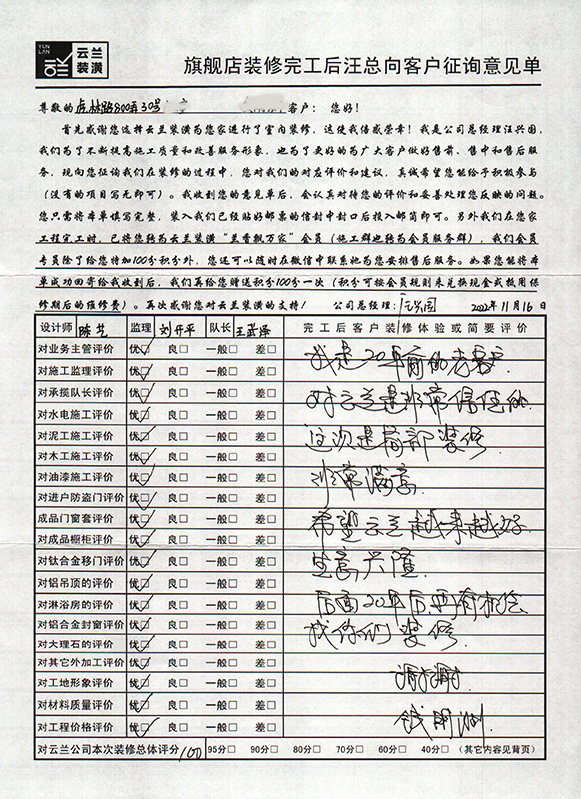 YUN LAN
云兰装潢
旗舰店装修完工后汪总向客户征询意见单
尊敬的虎林路800弄30号 客户： 您好！
首先感谢您选择云兰装潢为您家进行了室内装修，这使我倍感荣幸！我是公司总经理汪兴国，
我们为了不断提高施工质量和改善服务形象，也为了更好的为广大客户做好售前、售中和售后服
务，现向您征询我们在装修的过程中，您对我们的对应评价和建议，真诚希望您能给予积极参与
（没有的项目写无即可）。我收到您的意见单后，会认真对待您的评价和妥善处理您反映的问题。
您只需将本单填写完整，装入我们已经贴好邮票的信封中封口后投入邮筒即可。另外我们在您家
工程完工时，已将您转为云兰装潢“兰香飘万家”会员（施工群也转为会员服务群），我们会员
专员除了给您增加100分积分外，您还可以随时在微信中联系他为您安排售后服务。如果您能将本
单成功回寄给我收到后，我们再给您赠送积分100分一次（积分可按会员规则未兑换现金或抵用保
修期后的维修费）。再次感谢您对云兰装潢的支持！ 公司总经理：汪兴国 2022年11月16日
设计师 陈艺 监理 刘开平 队长 王武 完工后客户装修体验或简要评价
对业务主管评价 优☑ 良□ 一般□ 差□ 我是20年前的老客户
对施工监理评价 优☑ 良□ 一般□ 差□
对承揽队长评价 优☑ 良□ 一般□ 差□ 对云兰是非常信任的
对水电施工评价 优☑ 良□ 一般□ 差□
对泥工施工评价 优☑ 良□ 一般□ 差□ 这次是局部装修
对木工施工评价 优☑ 良□ 一般□ 差□
对油漆施工评价 优☑ 良□ 一般□ 差□ 非常满意
对进户防盗门评价 优☑ 良□ 一般□ 差□
成品门窗套评价 优☑ 良□ 一般□ 差□ 希望云兰越来越好
对成品橱柜评价 优☑ 良□ 一般□ 差□
对钛合金移门评价 优☑ 良□ 一般□ 差□ 生意兴隆
对铝吊顶的评价 优☑ 良□ 一般□ 差□
对淋浴房的评价 优☑ 良□ 一般□ 差□ 后面20年后再有机会
对铝合金封窗评价 优☑ 良□ 一般□ 差□ 找你们装修
对大理石的评价 优☑ 良□ 一般□ 差□
对其它外加工评价 优☑ 良□ 一般□ 差□
对工地形象评价 优☑ 良□ 一般□ 差□ 谢谢
对材料质量评价 优☑ 良□ 一般□ 差□
对工程价格评价 优☑ 良□ 一般□ 差□ 钱明
对云兰公司本次装修总体评分 100 95分□ 90分□ 80分□ 70分□ 60分□ 40分□ （其它内容见背页）